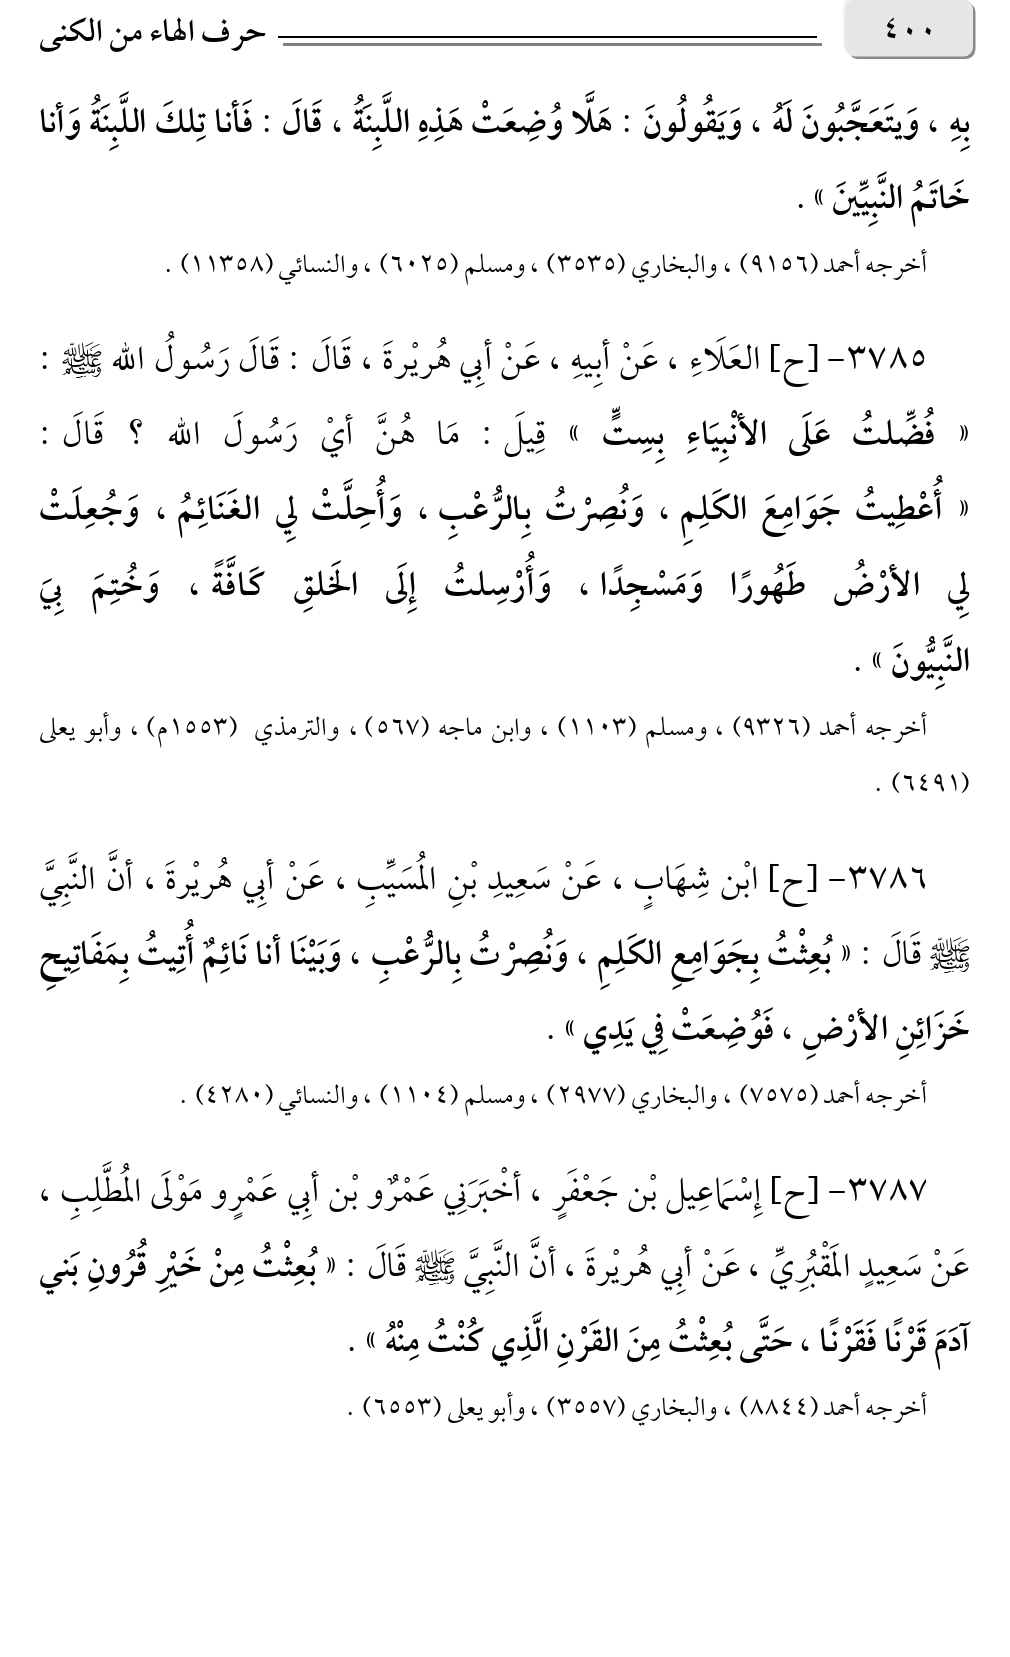 ٤٠٠
حرف الهاء من الكنى
بِهِ ، وَيتَعَجَّبُونَ لَهُ ، وَيَقُولُونَ : هَلَّا وُضِعَتْ هَذِهِ اللَّبِنَةُ ، قَالَ : فَأنا تِلكَ اللَّبِنَةُ وَأنا
خَاتَمُ النَّبِيِّينَ » .
أخرجه أحمد (٩١٥٦) ، والبخاري (٣٥٣٥) ، ومسلم (٦٠٢٥) ، والنسائي (١١٣٥٨) .
٣٧٨٥- [ح] العَلَاءِ ، عَنْ أبِيهِ ، عَنْ أبِي هُريْرةَ ، قَالَ : قَالَ رَسُولُ الله ﷺ :
« فُضِّلتُ عَلَى الأنْبِيَاءِ بِسِتٍّ » قِيلَ : مَا هُنَّ أيْ رَسُولَ الله ؟ قَالَ :
« أُعْطِيتُ جَوَامِعَ الكَلِمِ ، وَنُصِرْتُ بِالرُّعْبِ ، وَأُحِلَّتْ لِي الغَنَائِمُ ، وَجُعِلَتْ
لِي الأرْضُ طَهُورًا وَمَسْجِدًا ، وَأُرْسِلتُ إِلَى الخَلقِ كَافَّةً ، وَخُتِمَ بِيَ
النَّبِيُّونَ » .
أخرجه أحمد (٩٣٢٦) ، ومسلم (١١٠٣) ، وابن ماجه (٥٦٧) ، والترمذي (١٥٥٣م) ، وأبو يعلى
(٦٤٩١) .
٣٧٨٦- [ح] ابْن شِهَابٍ ، عَنْ سَعِيدِ بْنِ المُسَيِّبِ ، عَنْ أبِي هُريْرةَ ، أنَّ النَّبِيَّ
ﷺ قَالَ : « بُعِثْتُ بِجَوَامِعِ الكَلِمِ ، وَنُصِرْتُ بِالرُّعْبِ ، وَبَيْنَا أنا نَائِمٌ أُتِيتُ بِمَفَاتِيحِ
خَزَائِنِ الأرْضِ ، فَوُضِعَتْ فِي يَدِي » .
أخرجه أحمد (٧٥٧٥) ، والبخاري (٢٩٧٧) ، ومسلم (١١٠٤) ، والنسائي (٤٢٨٠) .
٣٧٨٧- [ح] إِسْمَاعِيل بْن جَعْفَرٍ ، أخْبَرَنِي عَمْرٌو بْن أبِي عَمْرٍو مَوْلَى المُطَّلِبِ ،
عَنْ سَعِيدٍ المَقْبُرِيِّ ، عَنْ أبِي هُريْرةَ ، أنَّ النَّبِيَّ ﷺ قَالَ : « بُعِثْتُ مِنْ خَيْرِ قُرُونِ بَني
آدَمَ قَرْنًا فَقَرْنًا ، حَتَّى بُعِثْتُ مِنَ القَرْنِ الَّذِي كُنْتُ مِنْهُ » .
أخرجه أحمد (٨٨٤٤) ، والبخاري (٣٥٥٧) ، وأبو يعلى (٦٥٥٣) .